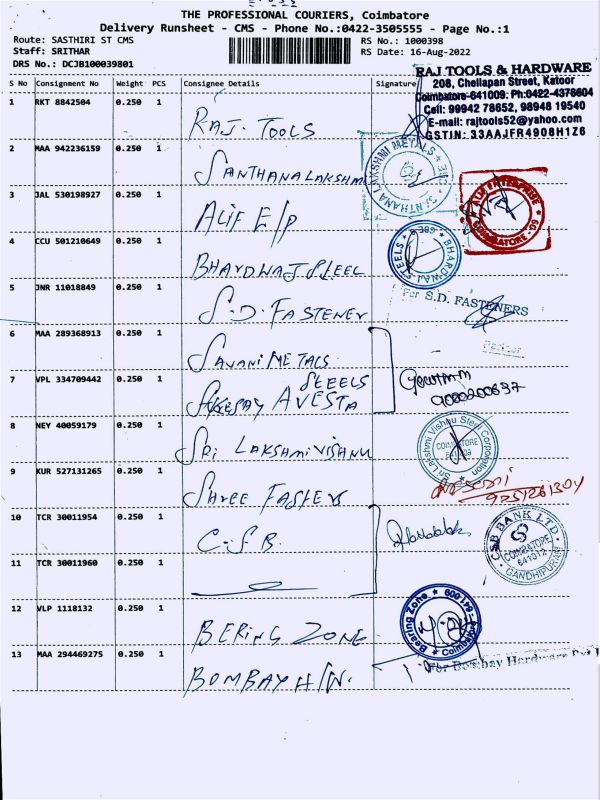 THE PROFESSIONAL COURIERS, Coimbatore
Delivery Runsheet - CMS - Phone No.:0422-3505555 - Page No.:1
Route: SASTHIRI ST CMS
RS No.: 1000398
Staff: SRITHAR
RS Date: 16-Aug-2022
DRS No.: DCJB100039801
RAJ TOOLS & HARDWARE
208, Chellapan Street, Katoor
Coimbatore-641009. Ph:0422-4376604
Cell: 99942 78652, 98948 19540
E-mail: rajtools52@yahoo.com
GSTIN: 33AAJFR4908H1Z6
S No Consignment No Weight PCS Consignee Details Signature
1 RKT 8842504 0.250 1 RAJ. TOOLS
2 MAA 942236159 0.250 1 SANTHANALAKSHMI
LAKSHMI METALS
3 JAL 530198927 0.250 1 ALIF E/P
ALIF ENTERPRISE
COIMBATORE - 09
4 CCU 501210649 0.250 1 BHARDWAJ STEEL
BHARDWAJ STEELS
5 JNR 11018849 0.250 1 S.D. FASTENER
For S.D. FASTENERS
6 MAA 289368913 0.250 1 SAVANI METALS
Partner
7 VPL 334709442 0.250 1 STEELS
AVESTA
8 NEY 40059179 0.250 1 SRI LAKSHMI VISHNU
Sri Lakshmi Vishnu Steel Corporation
COIMBATORE
641009
9 KUR 527131265 0.250 1 SHREE FASTERS
10 TCR 30011954 0.250 1 C.S.B.
CSB BANK LTD.
COIMBATORE
641012
GANDHIPURAM
11 TCR 30011960 0.250 1
12 VLP 1118132 0.250 1 BERING ZONE
Bearing Zone
Coimbatore - 641 009
13 MAA 294469275 0.250 1 BOMBAY H/W.
For Bombay Hardware